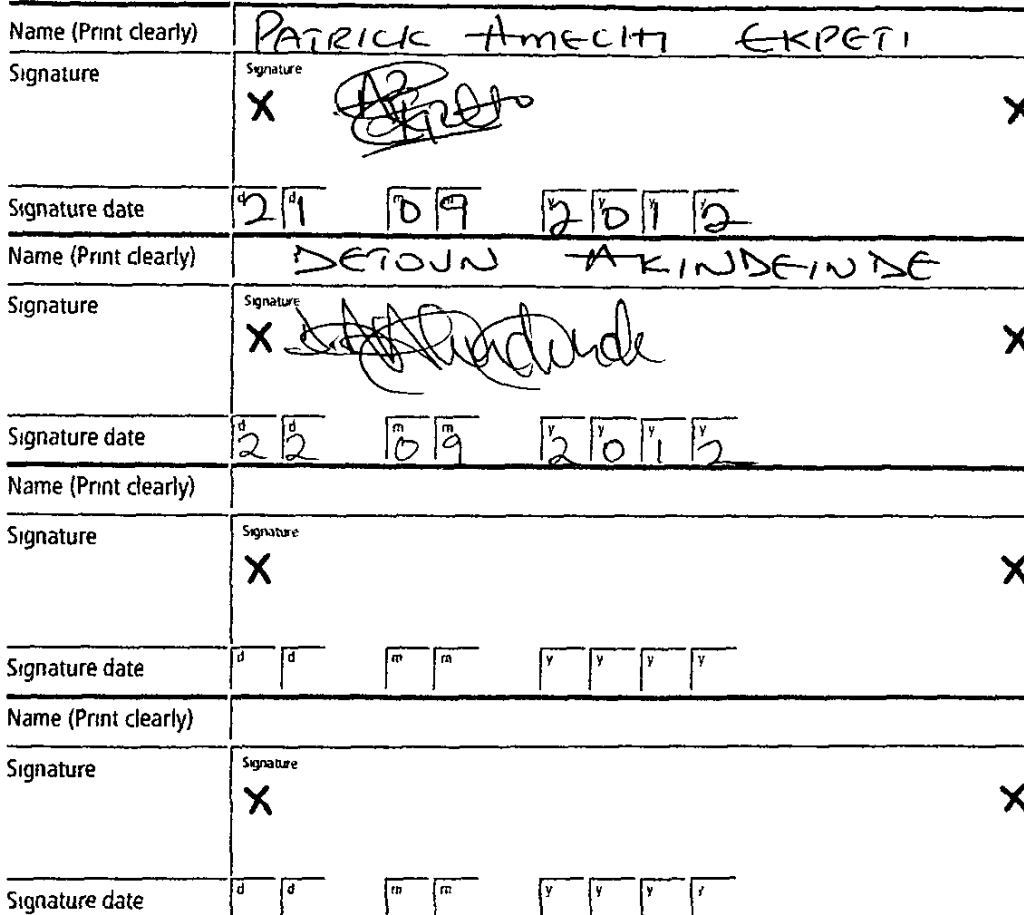 Name (Print clearly) PATRICK AMECHI EKPETI
Signature Signature
X X
Signature date d d m m y y y y 21 09 2012
Name (Print clearly) DETOUN AKINDEINDE
Signature Signature
X X
Signature date d d m m y y y y 22 09 2012
Name (Print clearly)
Signature Signature
X X
Signature date d d m m y y y y
Name (Print clearly)
Signature Signature
X X
Signature date d d m m y y y y